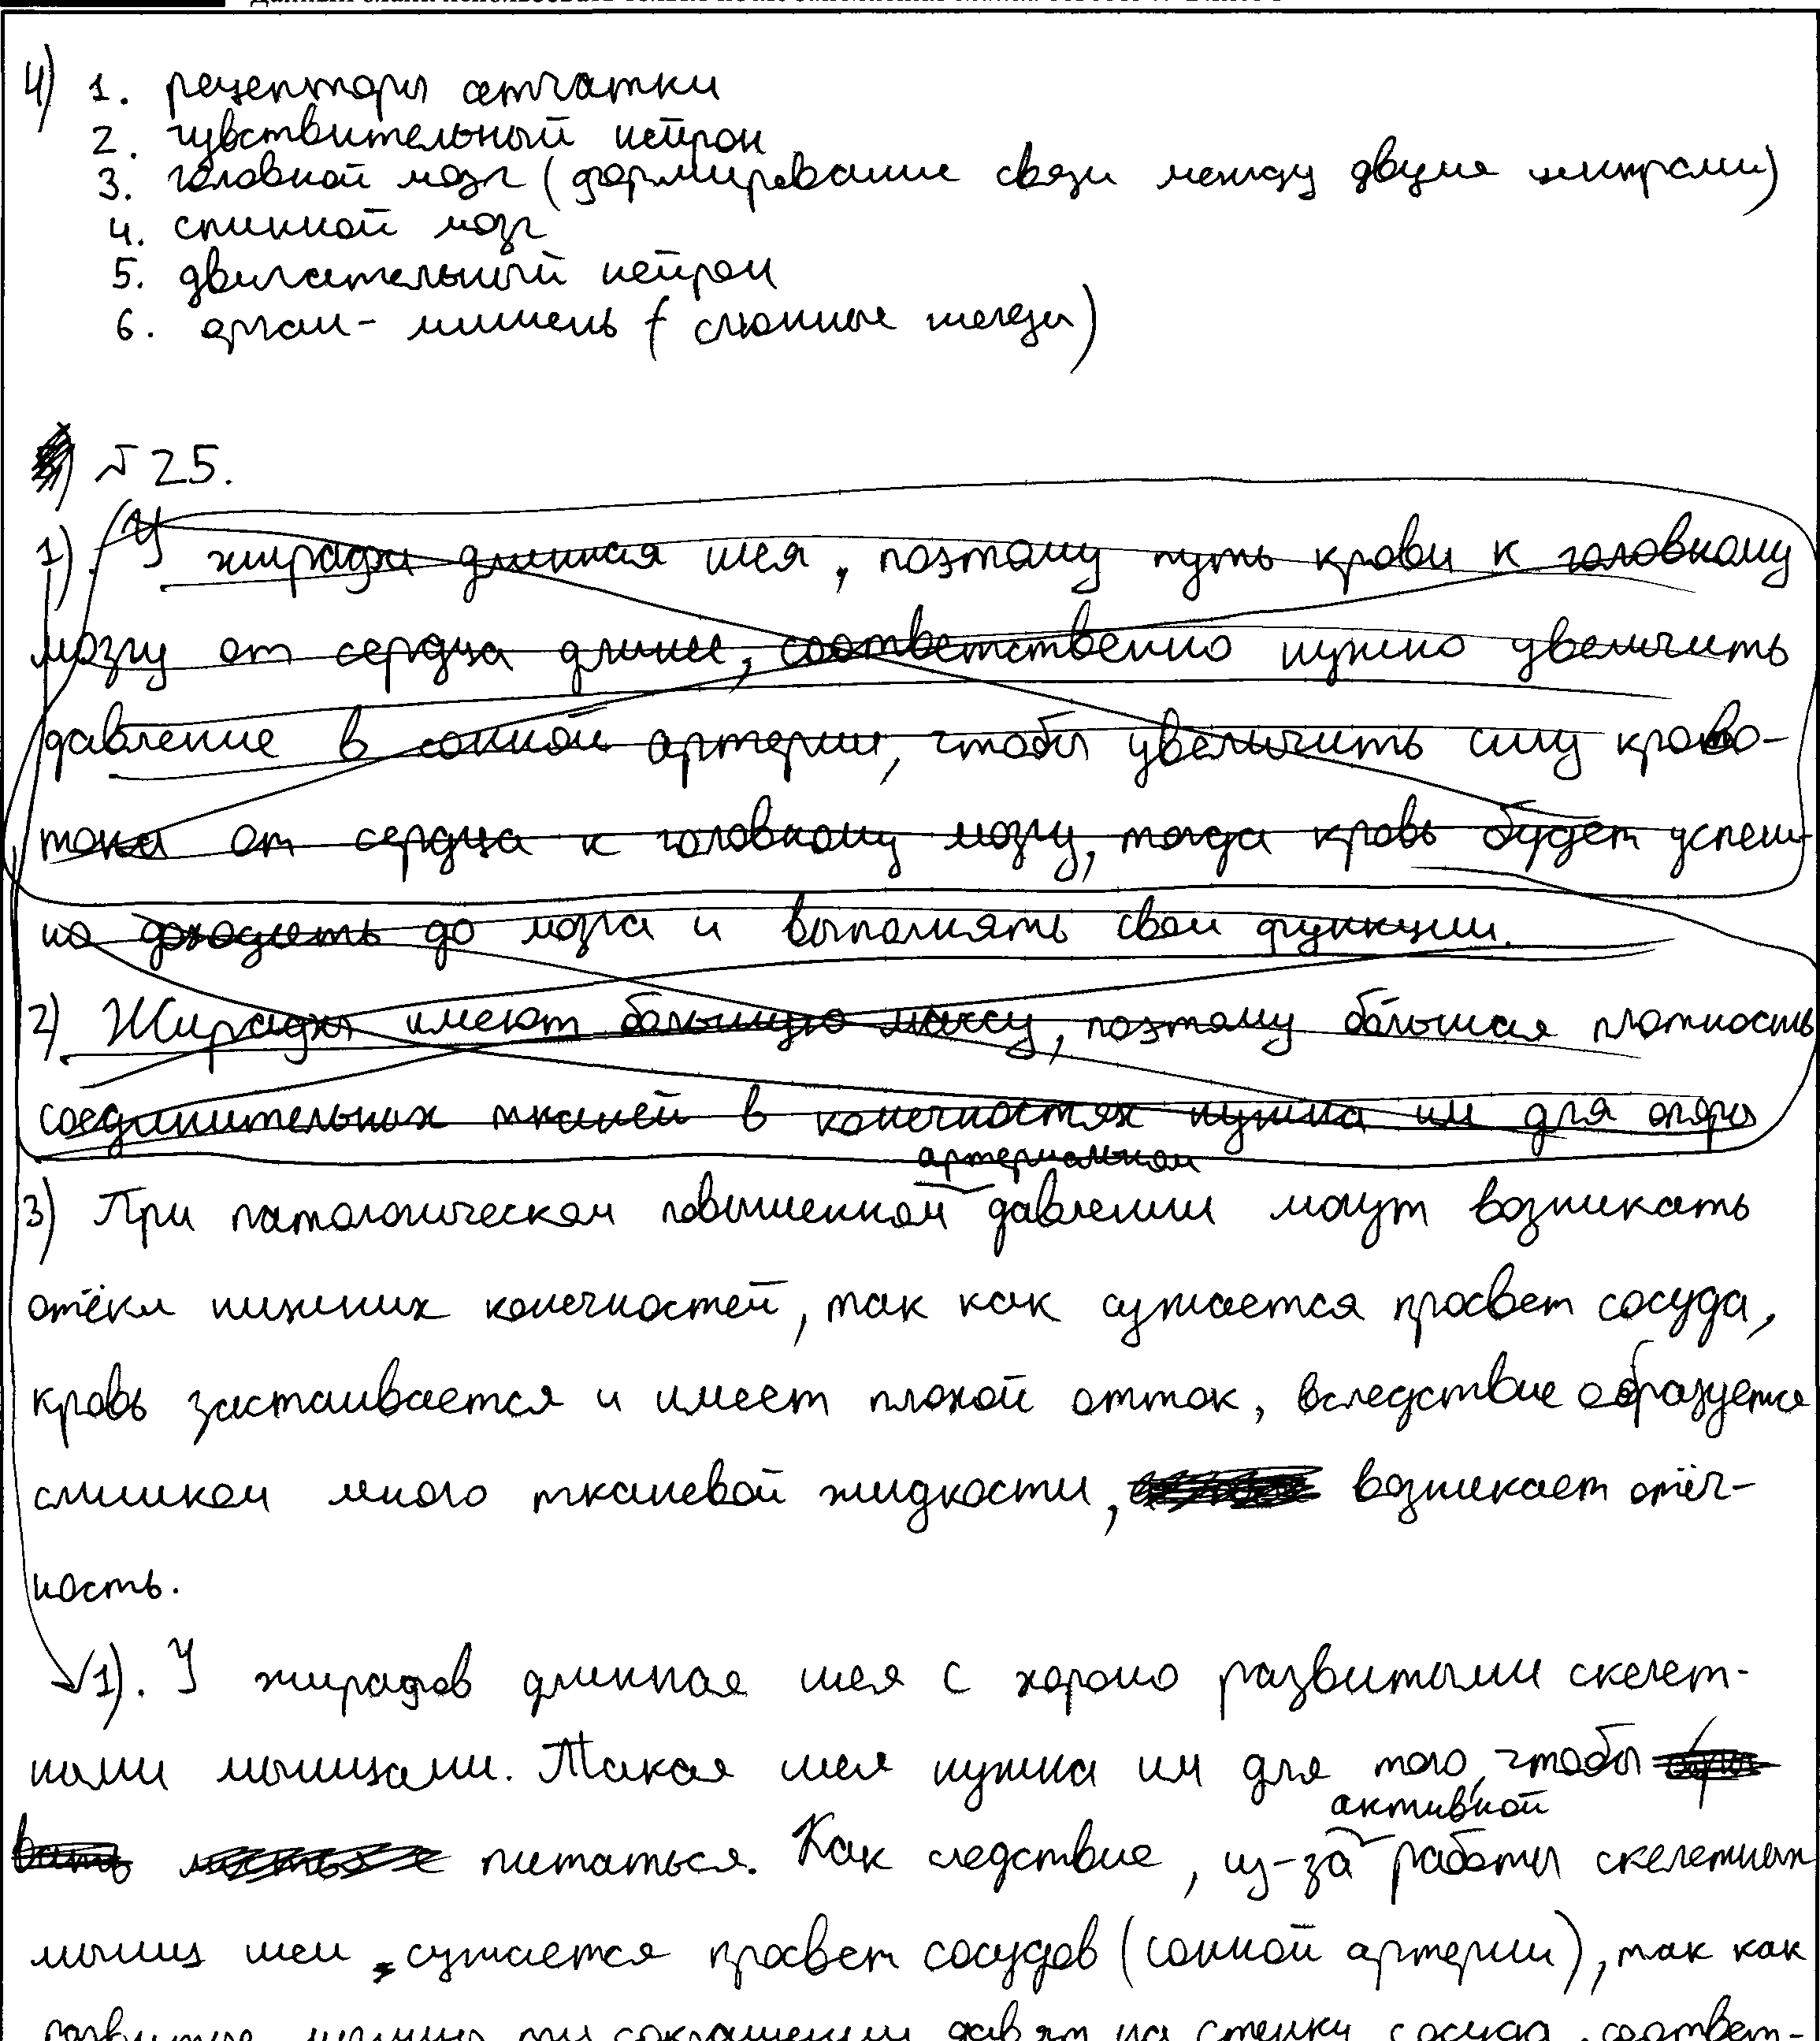 4) 1. рецепторы сетчатки
2. чувствительный нейрон
3. головной мозг (формирование связи между двумя центрами)
4. спинной мозг
5. двигательный нейрон
6. орган-мишень (слюнные железы)
№25.
1). У жирафа длинная шея, поэтому путь крови к головному
мозгу от сердца длинее, соответственно нужно увеличить
давление в сонной артерии, чтобы увеличить силу крово-
тока от сердца к головному мозгу, тогда кровь будет успеш-
но доходить до мозга и выполнять свои функции.
2) Жирафы имеют большую массу, поэтому бо́льшая плотность
соединительных тканей в конечностях нужна им для опоры
артериальном
3) При патологическом повышенном давлении могут возникать
отёки нижних конечностей, так как сужается просвет сосуда,
кровь застаивается и имеет плохой отток, вследствие образуется
слишком много тканевой жидкости, возникает отёч-
ность.
1). У жирафов длинная шея с хорошо развитыми скелет-
ными мышцами. Такая шея нужна им для того, чтобы
активной
питаться. Как следствие, из-за работы скелетных
мышц шеи сужается просвет сосудов (сонной артерии), так как
развитые мышцы при сокращении давят на стенку сосуда, соответ-